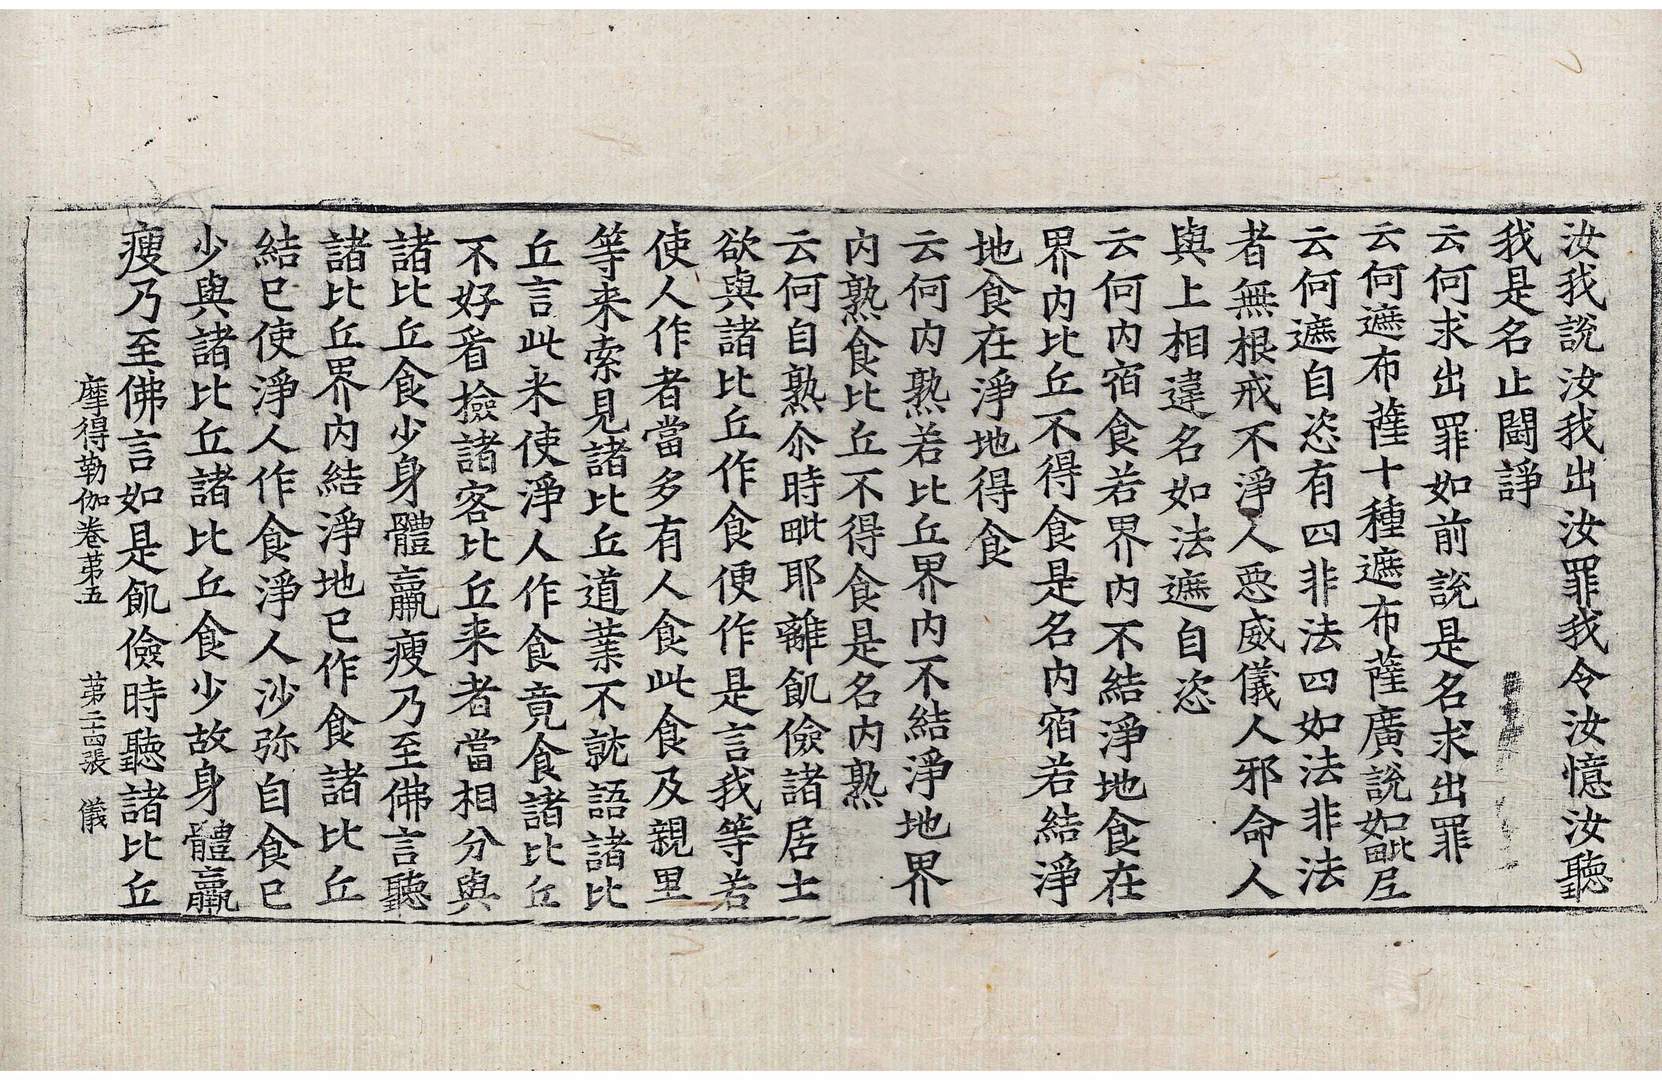 汝我說汝我出汝罪我令汝憶汝聽
我是名止鬪諍
云何求出罪如前說是名求出罪
云何遮布薩十種遮布薩廣說如毗尼
云何遮自恣有四非法四如法非法
者無根戒不淨人惡威儀人邪命人
與上相違名如法遮自恣
云何内宿食若界内不結淨地食在
界内比丘不得食是名内宿若結淨
地食在淨地得食
云何内熟若比丘界内不結淨地界
内熟食比丘不得食是名内熟
云何自熟尒時毗耶離飢儉諸居士
欲與諸比丘作食便作是言我等若
使人作者當多有人食此食及親里
等来索見諸比丘道業不就語諸比
丘言此米使淨人作食竟食諸比丘
不好看撿諸客比丘来者當相分與
諸比丘食少身體羸瘦乃至佛言聽
諸比丘界内結淨地已作食諸比丘
結已使淨人作食淨人沙弥自食已
少與諸比丘諸比丘食少故身體羸
瘦乃至佛言如是飢儉時聽諸比丘
摩得勒伽卷苐五 苐二十四張 儀